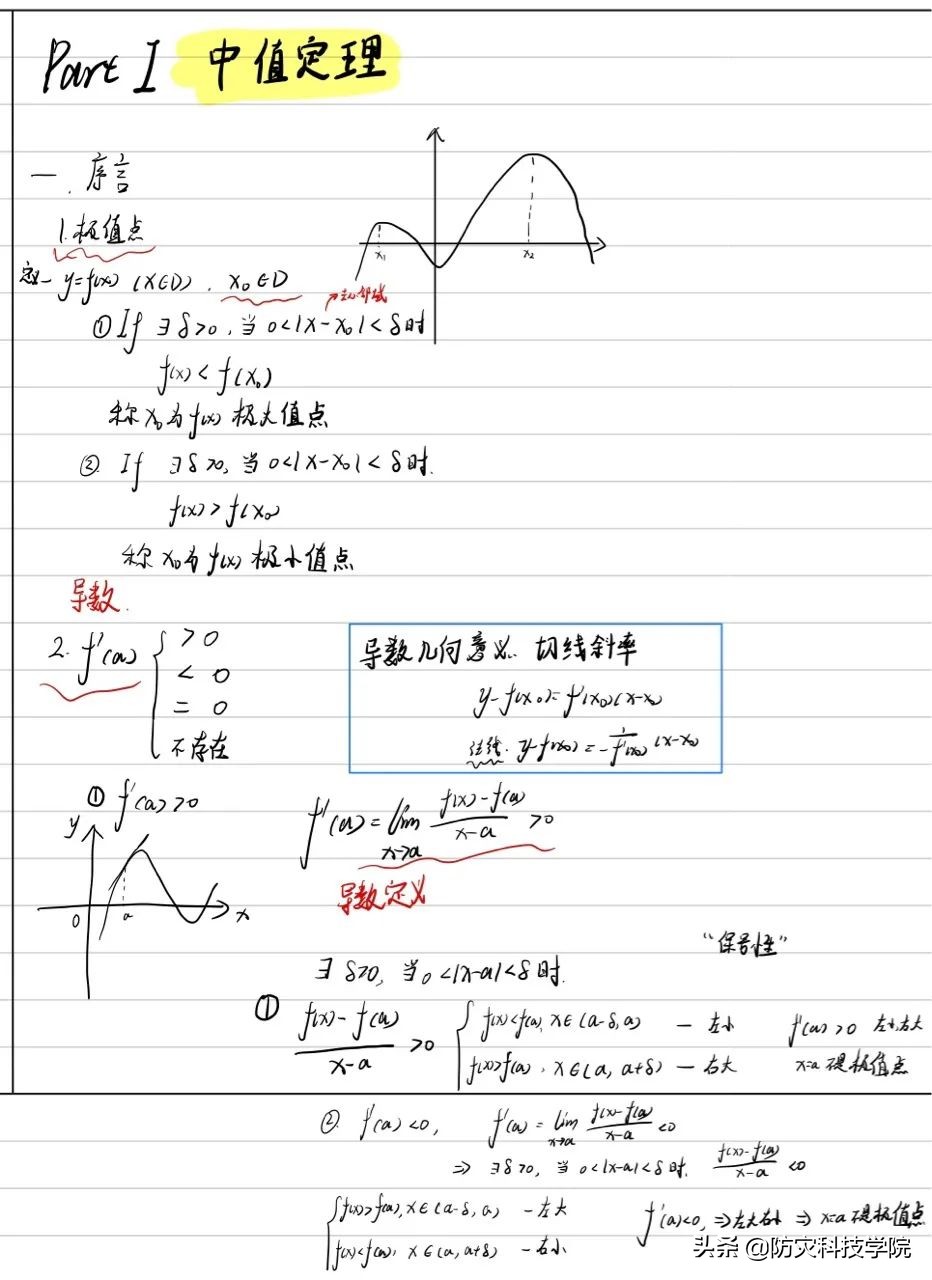 Part I 中值定理
一、序言
1.极值点
x₁ x₂
定一 y=f(x) (x∈D), x₀∈D
去心邻域
①If ∃δ>0, 当 0<|x-x₀|<δ时
f(x)<f(x₀)
称x₀为f(x)极大值点
② If ∃δ>0, 当0<|x-x₀|<δ时.
f(x)>f(x₀)
称x₀为f(x)极小值点
导数.
2. f'(a) { >0
<0
=0
不存在
导数几何意义. 切线斜率
y-f(x₀)=f'(x₀)(x-x₀)
法线. y-f(x₀)=-1/f'(x₀) (x-x₀)
① f'(a)>0
y
0 a x
f'(a)=lim x→a (f(x)-f(a))/(x-a) >0
导数定义
"保号性"
∃δ>0, 当0<|x-a|<δ时.
① (f(x)-f(a))/(x-a) >0 { f(x)<f(a), x∈(a-δ,a) — 左小 f'(a)>0 左小右大
f(x)>f(a), x∈(a,a+δ) — 右大 x=a 不是极值点
② f'(a)<0, f'(a)=lim x→a (f(x)-f(a))/(x-a) <0
⇒ ∃δ>0, 当0<|x-a|<δ时. (f(x)-f(a))/(x-a) <0
{ f(x)>f(a), x∈(a-δ,a) —左大 f'(a)<0, ⇒左大右小 ⇒ x=a不是极值点
f(x)<f(a), x∈(a,a+δ) —右小
头条 @防灾科技学院